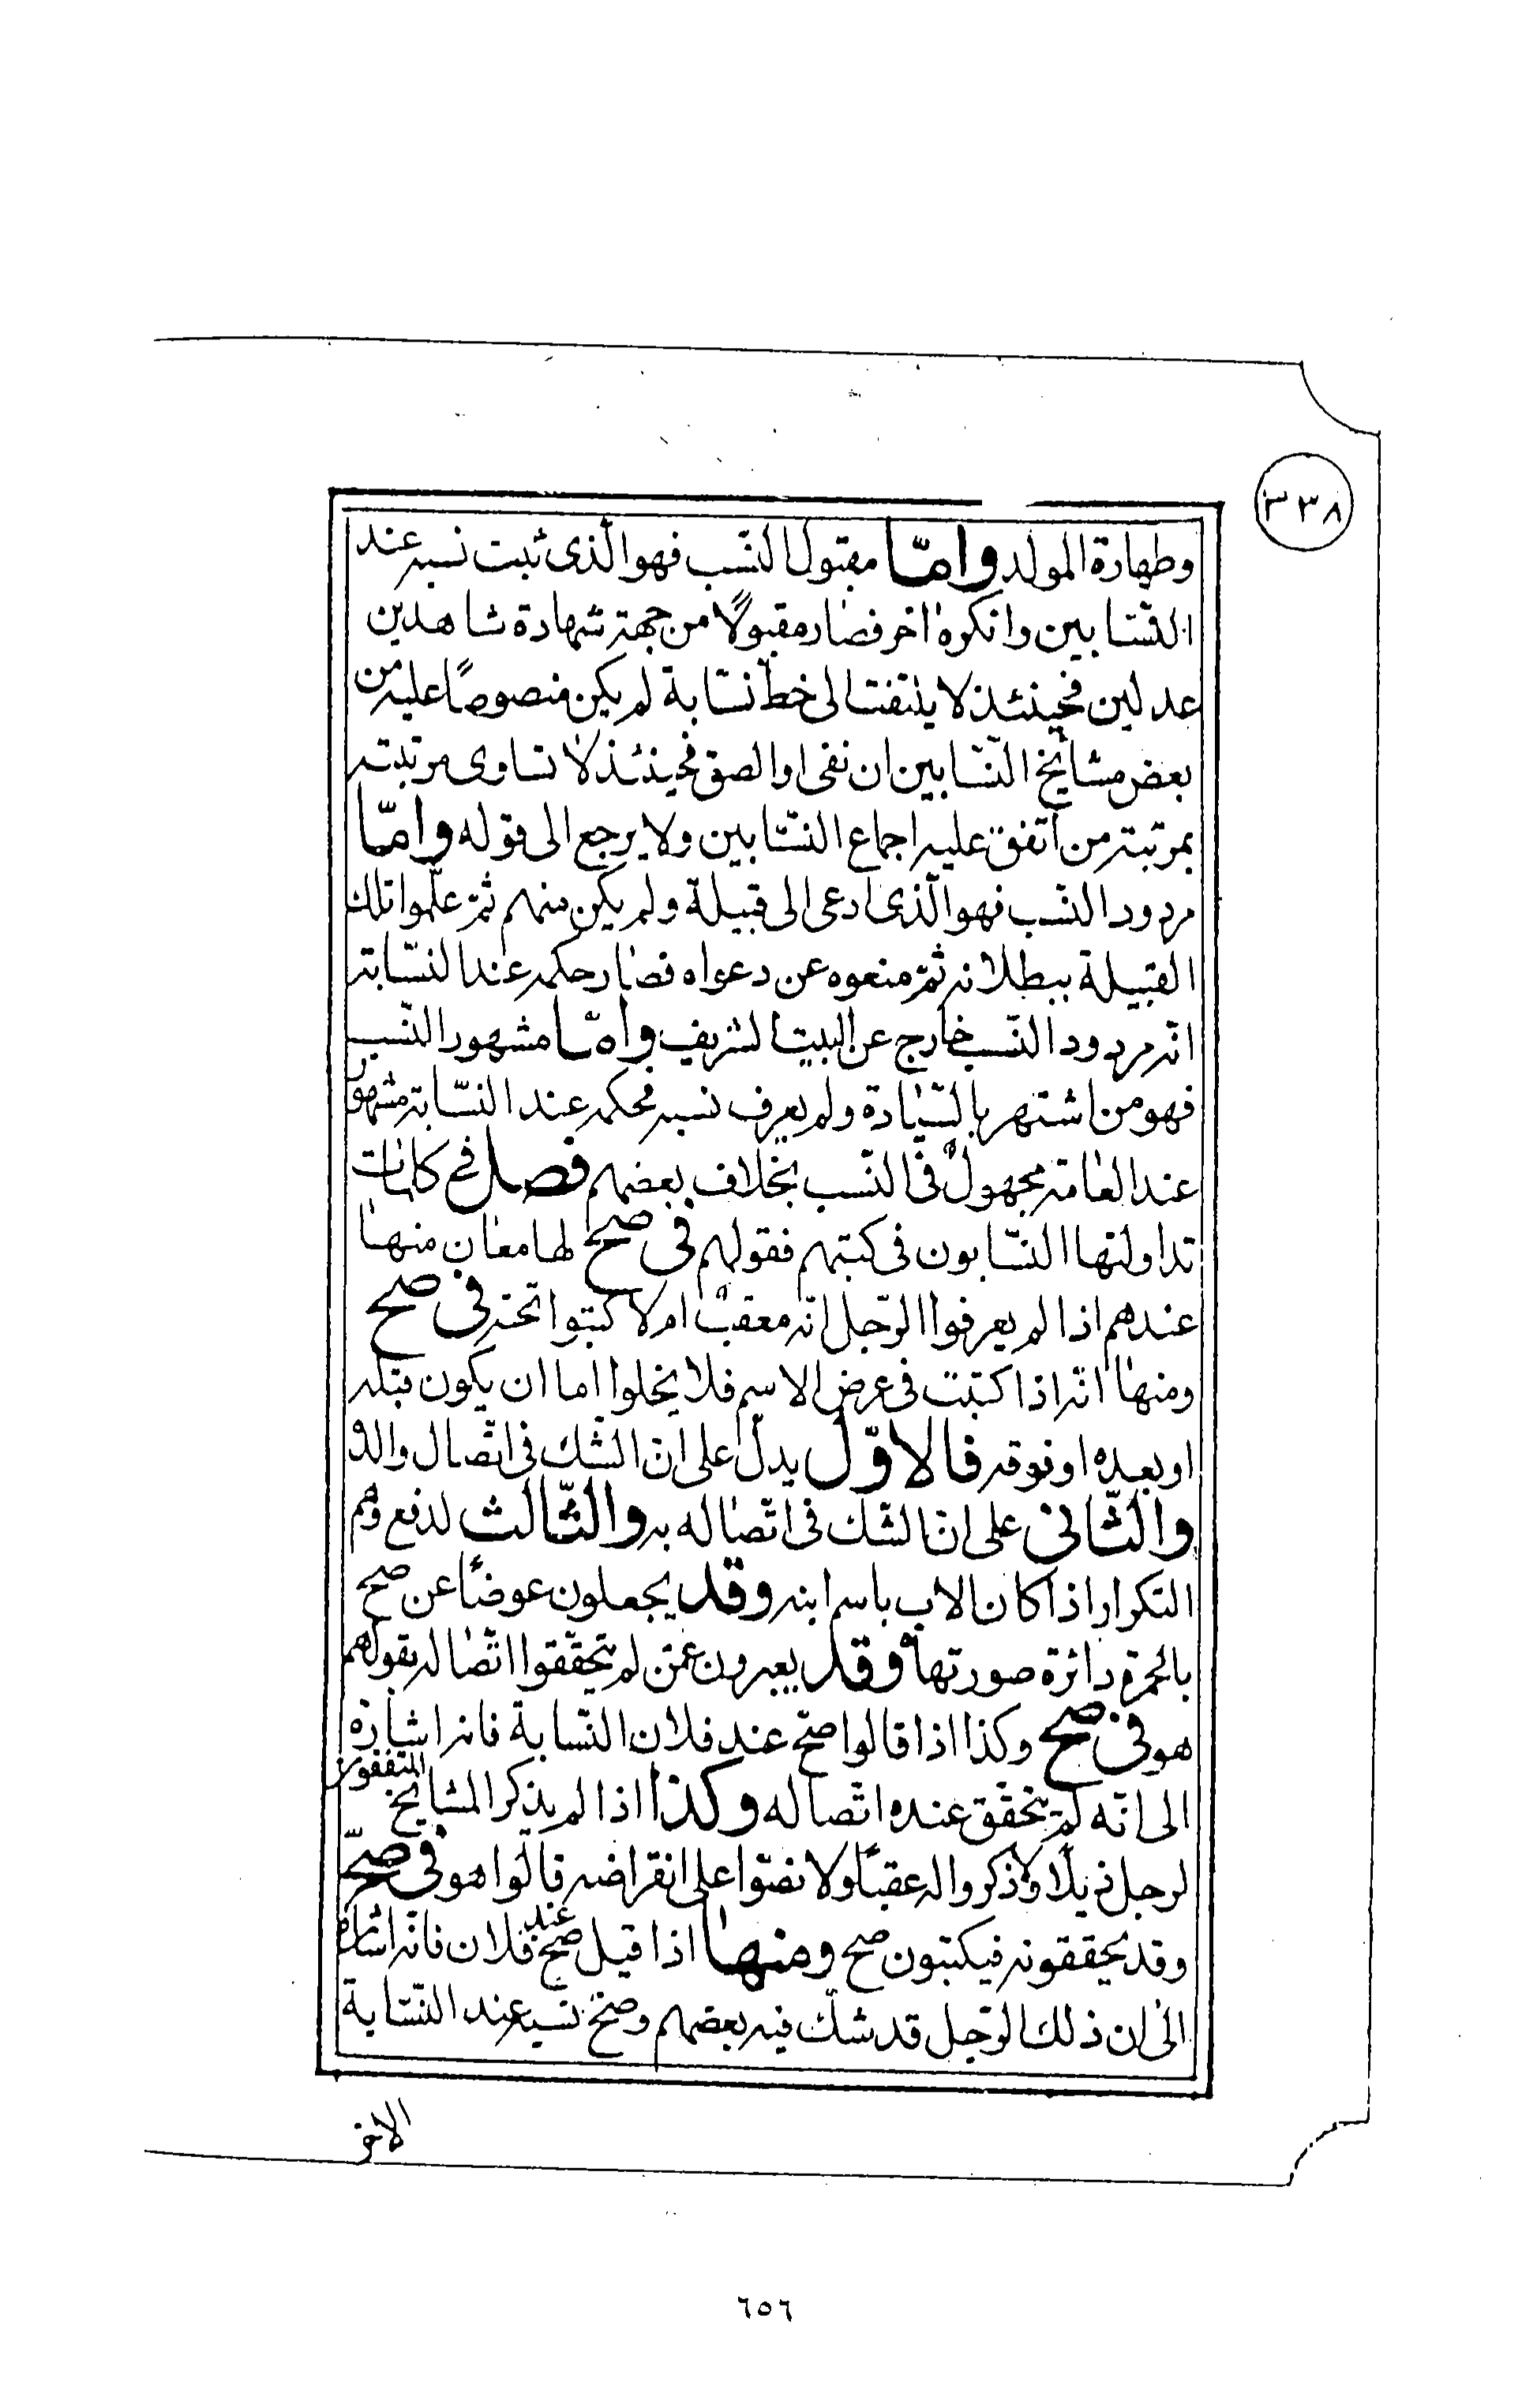 ٣٣٨
وطهارة المولد وامّا مقبول النّسب فهو الّذى ثبت نسبه عند
النّسّابين وانكره اخر فصار مقبولًا من جهة شهادة شاهدين
عدلين فحينئذ لا يلتفت الى خطّ نسّابة لم يكن منصوصًا عليه من
بعض مشايخ النّسّابين ان نفى او الصق فحينئذ لا تساوى مرتبته
بمرتبة من اتّفق عليه اجماع النسّابين ولا يرجع الى قوله وامّا
مردود النّسب فهو الّذى ادعى الى قبيلة ولم يكن منهم ثمّ علّموا تلك
القبيلة ببطلانه ثمّ منعوه عن دعواه فصار حكمه عند النسّابة
انّه مردود النّسب خارج عن البيت الشريف وامّا مشهور النّسب
فهو من اشتهر بالسّيادة ولم يعرف نسبه فحكمه عند النسّابة مشهور
عند العامّة مجهولٌ فى النّسب بخلاف بعضهم فصل فى كلمات
تداولتها النسّابون فى كتبهم فقولهم فى صح لها معان منها
عندهم اذا لم يعرفوا الرّجل انّه معقبٌ ام لا كتبوا تحته فى صح
ومنها انّه اذا كتبت فى عرض الاسم فلا يخلوا اما ان يكون قبله
او بعده او فوقه فالاوّل يدلّ على انّ الشّك فى اتّصال والده
والثّانى على انّ الشّك فى اتّصاله به والثّالث لدفع وهم
التكرار اذا كان الاب باسم ابنه وقد يجعلون عوضًا عن صح
بالحمرة دائرة صورتها ه وقد يعبرون عمّن لم يتحقّقوا اتّصاله بقولهم
هو فى صح وكذا اذا قالوا صحّ عند فلان النّسابة فانه اشارة
الى انّه لم يتحقّق عنده اتّصاله وكذا اذا لم يذكر المشايخ المتقنون
لرجل ذيلًا ولا ذكروا له عقبًا ولا نصّوا على انقراضه قالوا هو فى صحّ
وقد يحققونه فيكتبون صح ومنها اذا قيل صحّ عند فلان فانّه اشارة
الى ان ذلك الرّجل قد شكّ فيه بعضهم وصحّ نسبه عند النّسّابة
الاخر
٦٥٦